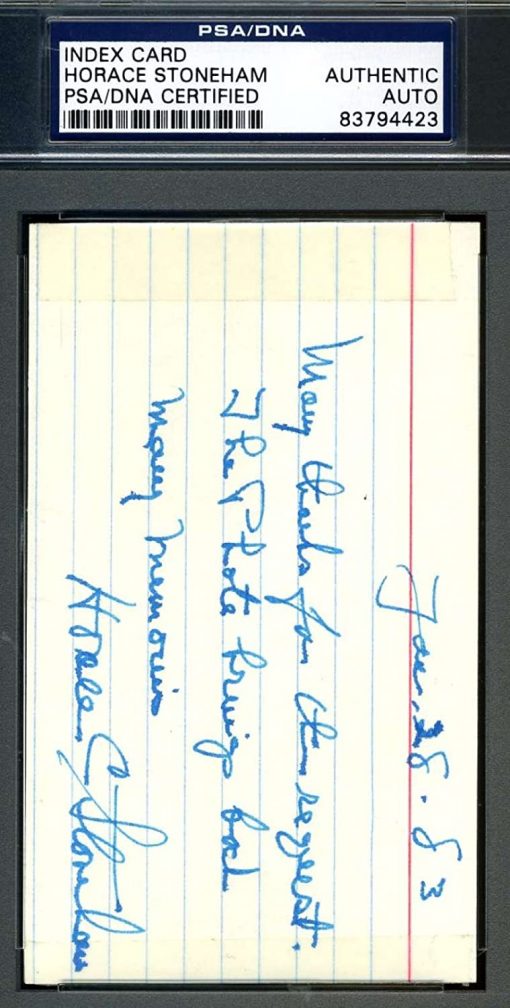 PSA/DNA
INDEX CARD
HORACE STONEHAM
PSA/DNA CERTIFIED
AUTHENTIC
AUTO
83794423
Jan. 28. 83
Many thanks for the request.
The Photo brings back
many memories
Horace C Stoneham